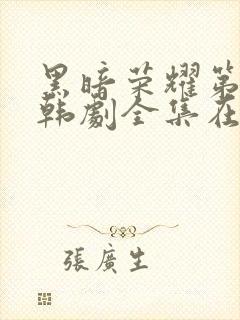 黑暗荣耀第
韩劇全集在
張廣生